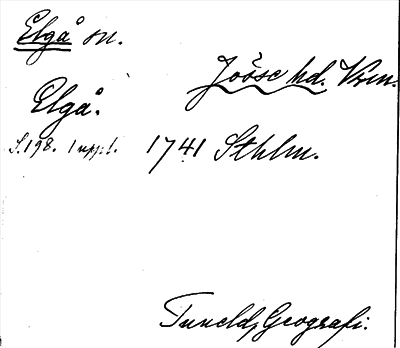 Elgå sn.
Jösse hd. Vrm.
Elgå.
S.198. 1 uppl. 1741 Sthlm.
Tunelds Geografi.